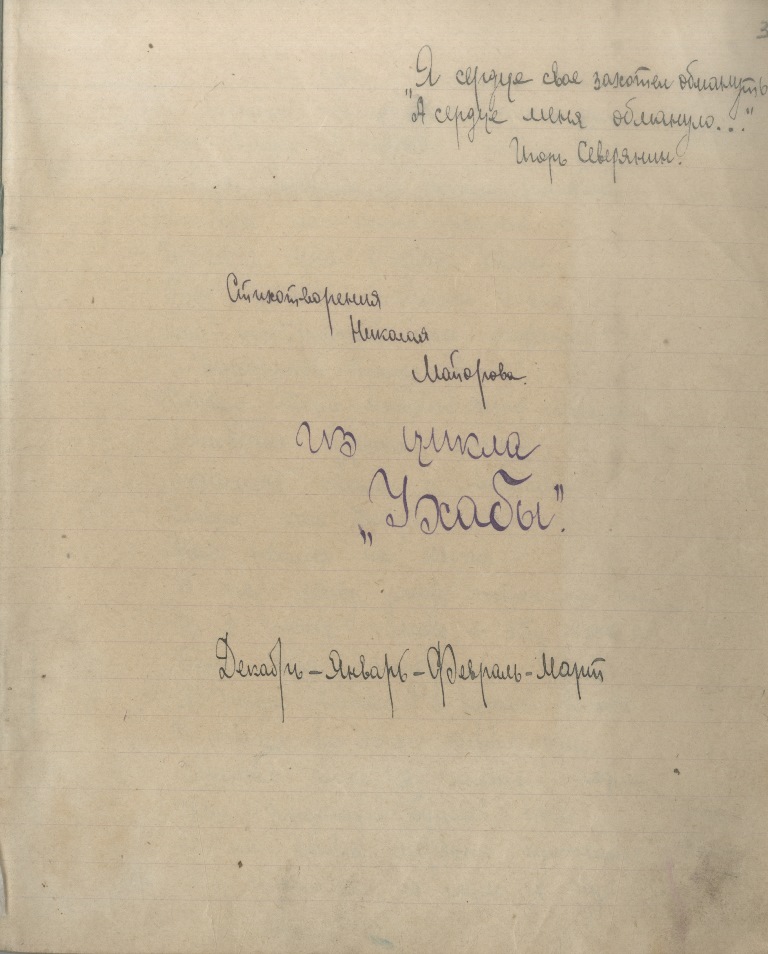 3
Я сердце свое захотел обмануть
"А сердце меня обмануло..."
Игорь Северянин.
Стихотворения
Николая
Майорова.
из цикла
„Ухабы".
Декабрь – Январь – Февраль – Март